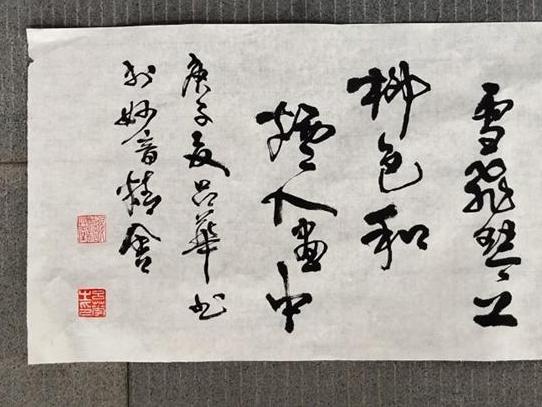 雪飛琴上
柳色和
煙入畫中
庚子夏吕華书
於妙音精舍